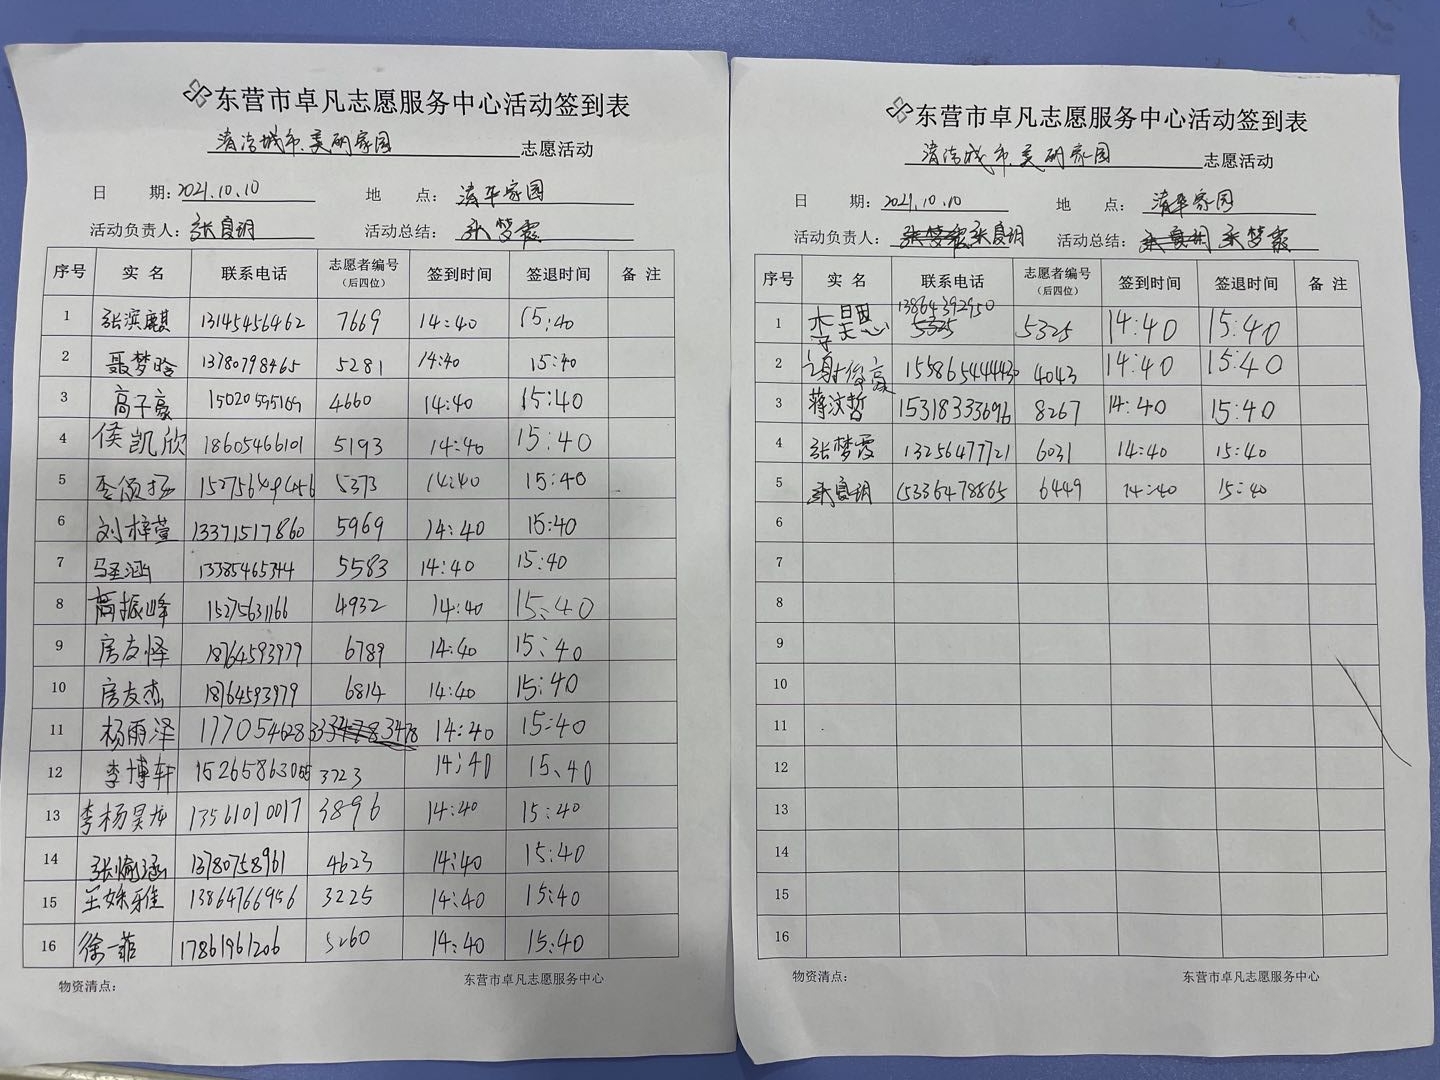 东营市卓凡志愿服务中心活动签到表
清洁城市.美丽家园 志愿活动
日 期: 2021.10.10 地 点: 清平家园
活动负责人: 张夏玥 活动总结: 张梦霞
序号 实名 联系电话 志愿者编号（后四位） 签到时间 签退时间 备注
1 张滨麒 13145456462 7669 14:40 15:40
2 聂梦晗 13780798465 5281 14:40 15:40
3 高子豪 15020595169 4660 14:40 15:40
4 侯凯欣 18605466101 5193 14:40 15:40
5 李颂扬 5373 14:40 15:40
6 刘梓萱 13371517860 5969 14:40 15:40
7 13385465344 5583 14:40 15:40
8 高振峰 15275631166 4932 14:40 15:40
9 房友怿 18764593979 6789 14:40 15:40
10 房友杰 18764593979 6814 14:40 15:40
11 杨雨泽 14:40 15:40
12 李博轩 15265863055 3723 14:40 15:40
13 李杨昊龙 13561010017 3896 14:40 15:40
14 张愉涵 13780758961 4623 14:40 15:40
15 王姝雅 13864766956 3225 14:40 15:40
16 徐一菲 17861961206 5260 14:40 15:40
物资清点: 东营市卓凡志愿服务中心
东营市卓凡志愿服务中心活动签到表
清洁城市.美丽家园 志愿活动
日 期: 2021.10.10 地 点: 清平家园
活动负责人: 张夏玥 活动总结: 张梦霞
序号 实名 联系电话 志愿者编号（后四位） 签到时间 签退时间 备注
1 13864392950 5325 14:40 15:40
2 谢俊豪 4043 14:40 15:40
3 蒋汶哲 15318333696 8267 14:40 15:40
4 张梦霞 13256477721 6031 14:40 15:40
5 张夏玥 15336478865 6449 14:40 15:40
6
7
8
9
10
11
12
13
14
15
16
物资清点: 东营市卓凡志愿服务中心